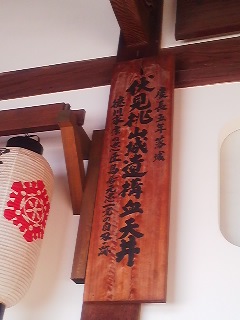 慶長五年落城
伏見桃山城遺構血天井
徳川家康忠臣鳥居元忠一党の自刃跡